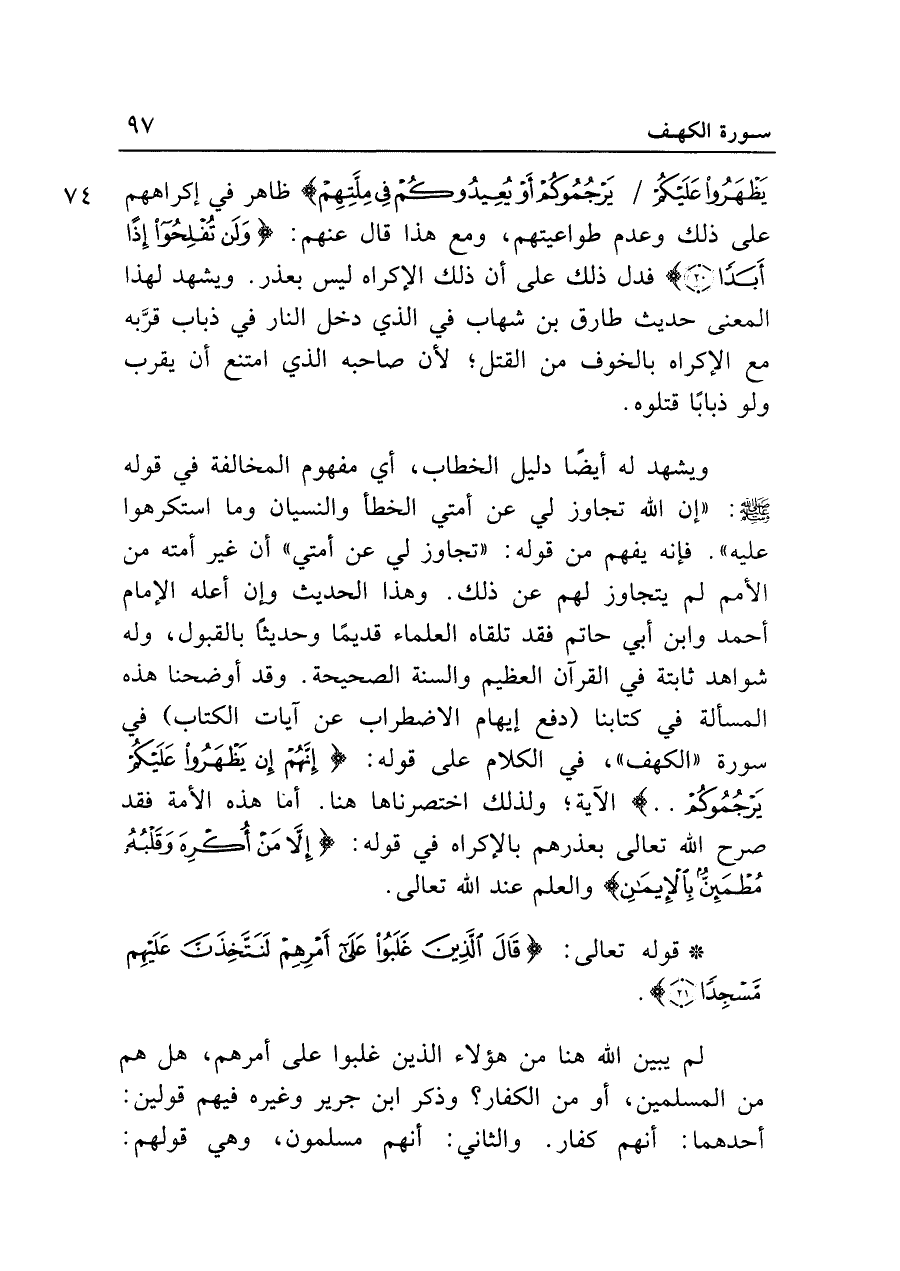 سورة الكهف ٩٧
يَظْهَرُوا۟ عَلَيْكُمْ / يَرْجُمُوكُمْ أَوْ يُعِيدُوكُمْ فِى مِلَّتِهِمْ﴾ ظاهر في إكراههم ٧٤
على ذلك وعدم طواعيتهم، ومع هذا قال عنهم: ﴿وَلَن تُفْلِحُوٓا۟ إِذًا
أَبَدًا ٢٠﴾ فدل ذلك على أن ذلك الإكراه ليس بعذر. ويشهد لهذا
المعنى حديث طارق بن شهاب في الذي دخل النار في ذباب قرَّبه
مع الإكراه بالخوف من القتل؛ لأن صاحبه الذي امتنع أن يقرب
ولو ذبابًا قتلوه.
ويشهد له أيضًا دليل الخطاب، أي مفهوم المخالفة في قوله
ﷺ: «إن الله تجاوز لي عن أمتي الخطأ والنسيان وما استكرهوا
عليه». فإنه يفهم من قوله: «تجاوز لي عن أمتي» أن غير أمته من
الأمم لم يتجاوز لهم عن ذلك. وهذا الحديث وإن أعله الإمام
أحمد وابن أبي حاتم فقد تلقاه العلماء قديمًا وحديثًا بالقبول، وله
شواهد ثابتة في القرآن العظيم والسنة الصحيحة. وقد أوضحنا هذه
المسألة في كتابنا (دفع إيهام الاضطراب عن آيات الكتاب) في
سورة «الكهف»، في الكلام على قوله: ﴿إِنَّهُمْ إِن يَظْهَرُوا۟ عَلَيْكُمْ
يَرْجُمُوكُمْ ..﴾ الآية؛ ولذلك اختصرناها هنا. أما هذه الأمة فقد
صرح الله تعالى بعذرهم بالإكراه في قوله: ﴿إِلَّا مَنْ أُكْرِهَ وَقَلْبُهُۥ
مُطْمَئِنٌّۢ بِٱلْإِيمَٰنِ﴾ والعلم عند الله تعالى.
* قوله تعالى: ﴿قَالَ ٱلَّذِينَ غَلَبُوا۟ عَلَىٰٓ أَمْرِهِمْ لَنَتَّخِذَنَّ عَلَيْهِم
مَّسْجِدًا ٢١﴾.
لم يبين الله هنا من هؤلاء الذين غلبوا على أمرهم، هل هم
من المسلمين، أو من الكفار؟ وذكر ابن جرير وغيره فيهم قولين:
أحدهما: أنهم كفار. والثاني: أنهم مسلمون، وهي قولهم: